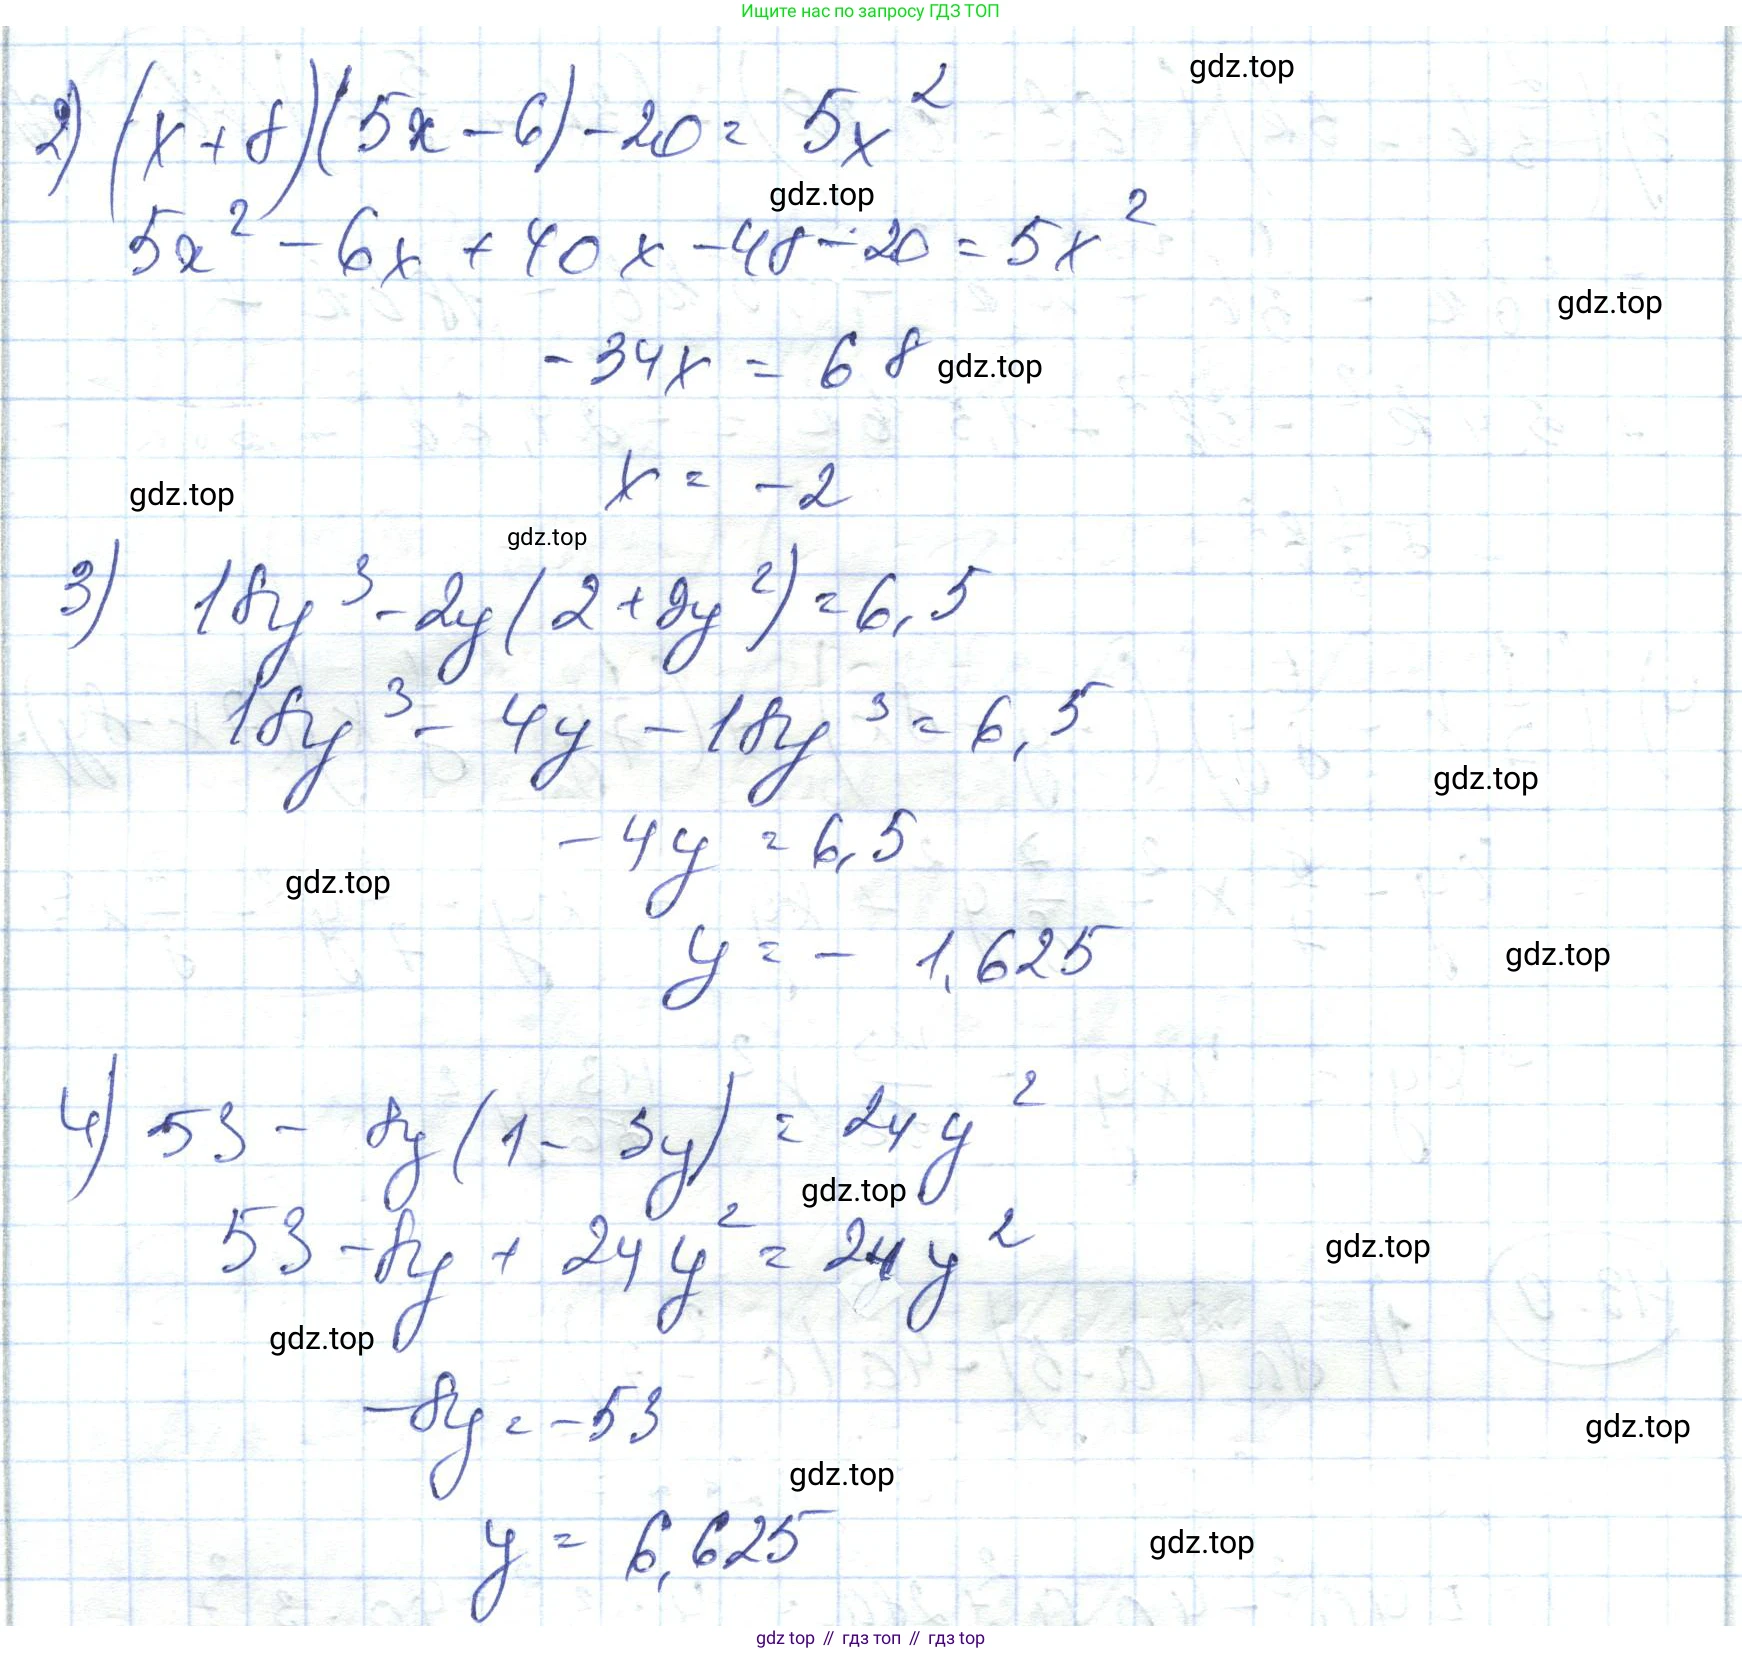 Ищите нас по запросу ГДЗ ТОП
gdz.top
2) (x + 8)(5x - 6) - 20 = 5x²
gdz.top
5x² - 6x + 40x - 48 - 20 = 5x²
gdz.top
- 34x = 68 gdz.top
x = - 2
gdz.top
gdz.top
3) 18y³ - 2y(2 + 9y²) = 6,5
18y³ - 4y - 18y³ = 6,5
gdz.top
- 4y = 6,5
gdz.top
y = - 1,625
gdz.top
4) 53 - 8y(1 - 3y) = 24y²
gdz.top
53 - 8y + 24y² = 24y²
gdz.top
gdz.top
- 8y = - 53
gdz.top
gdz.top
y = 6,625
gdz.top
gdz top // гдз топ // гдз top